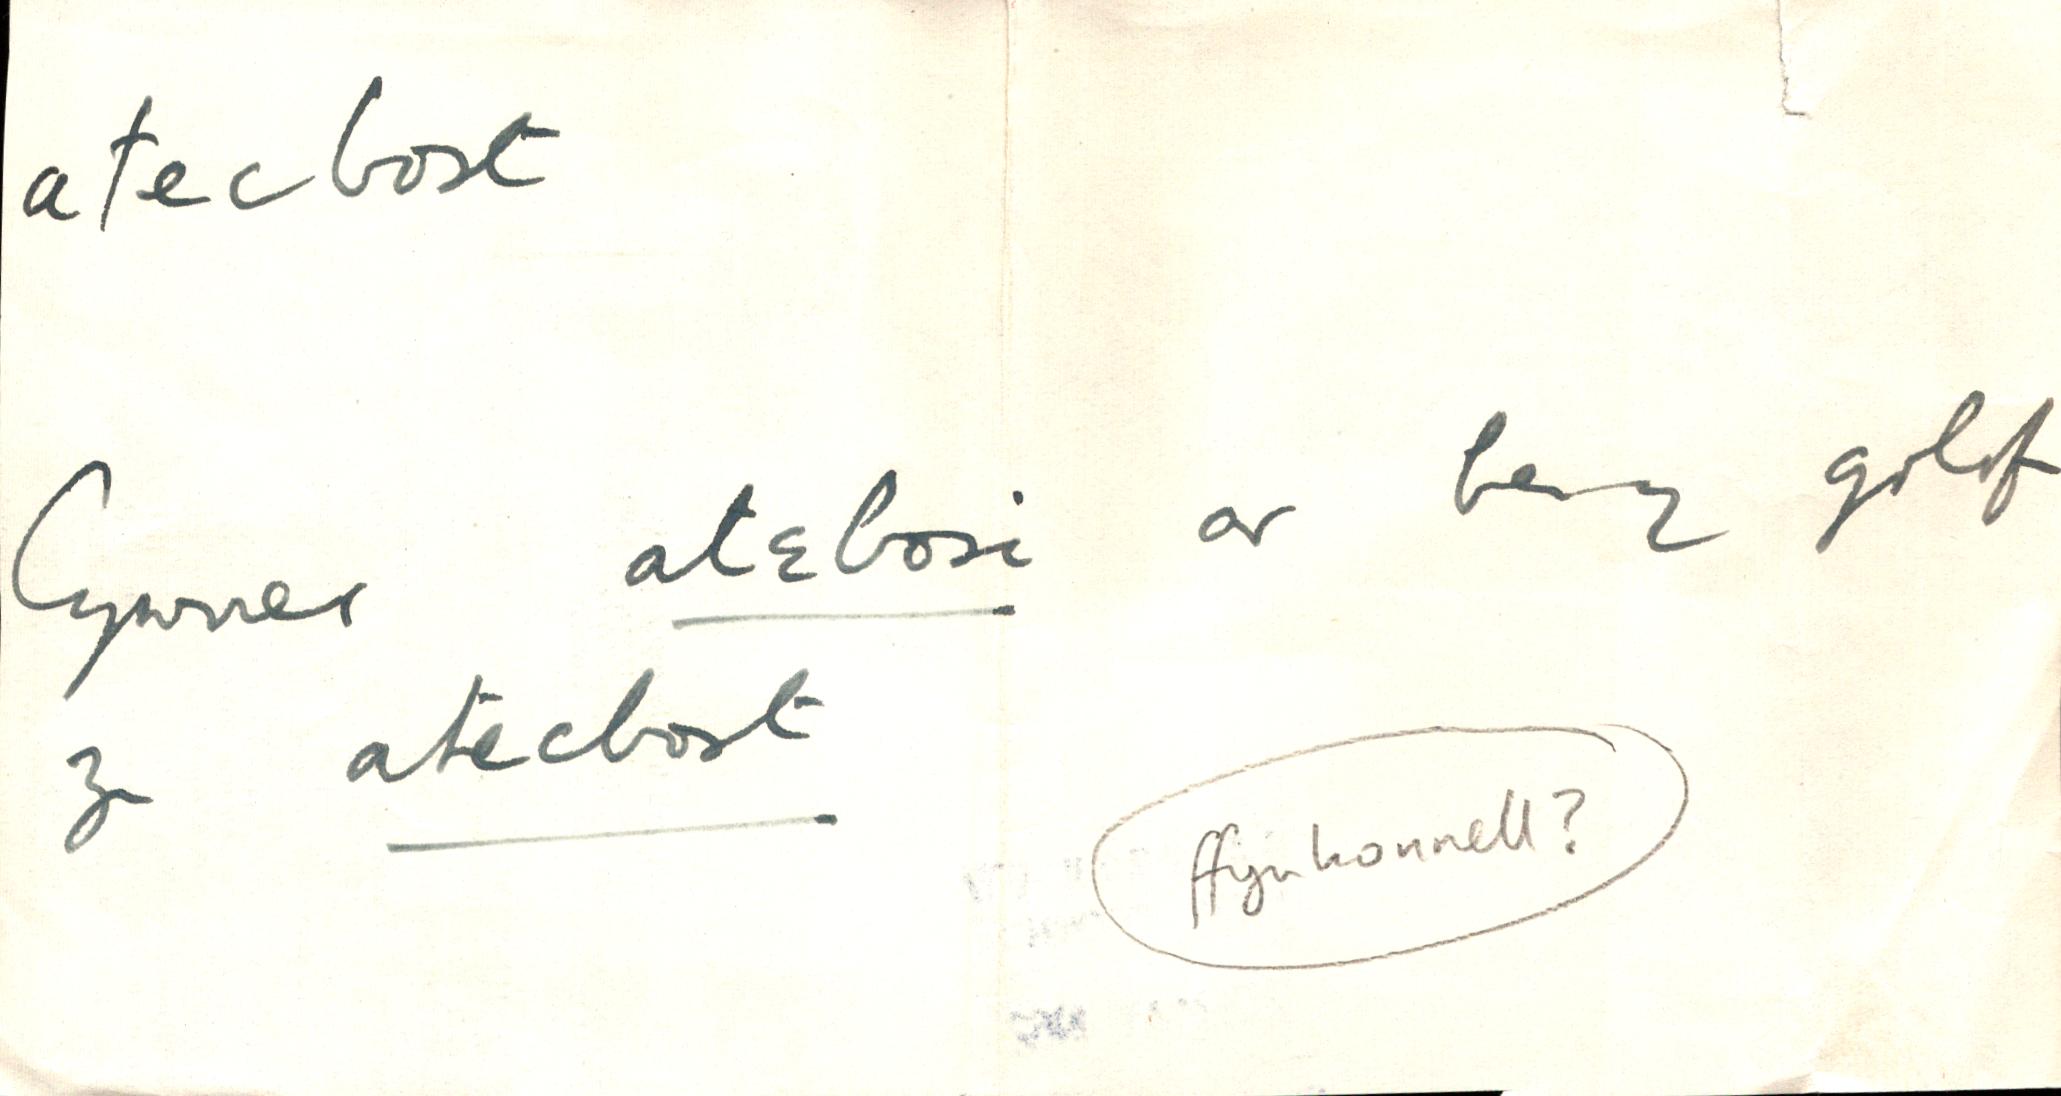 atecbost
Cymrer atebosi ar beny golof
yn atecbost
ffynhonnell?